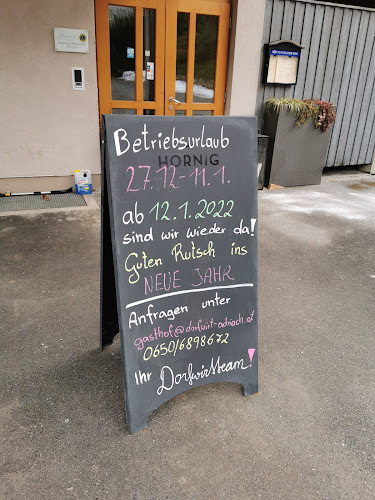 Betriebsurlaub
HORNIG
27.12-11.1.
ab 12.1.2022
sind wir wieder da!
Guten Rutsch ins
NEUE JAHR
Anfragen unter
gasthof@dorfwirt-adriach.at
0650/6898672
Ihr Dorfwirtteam!